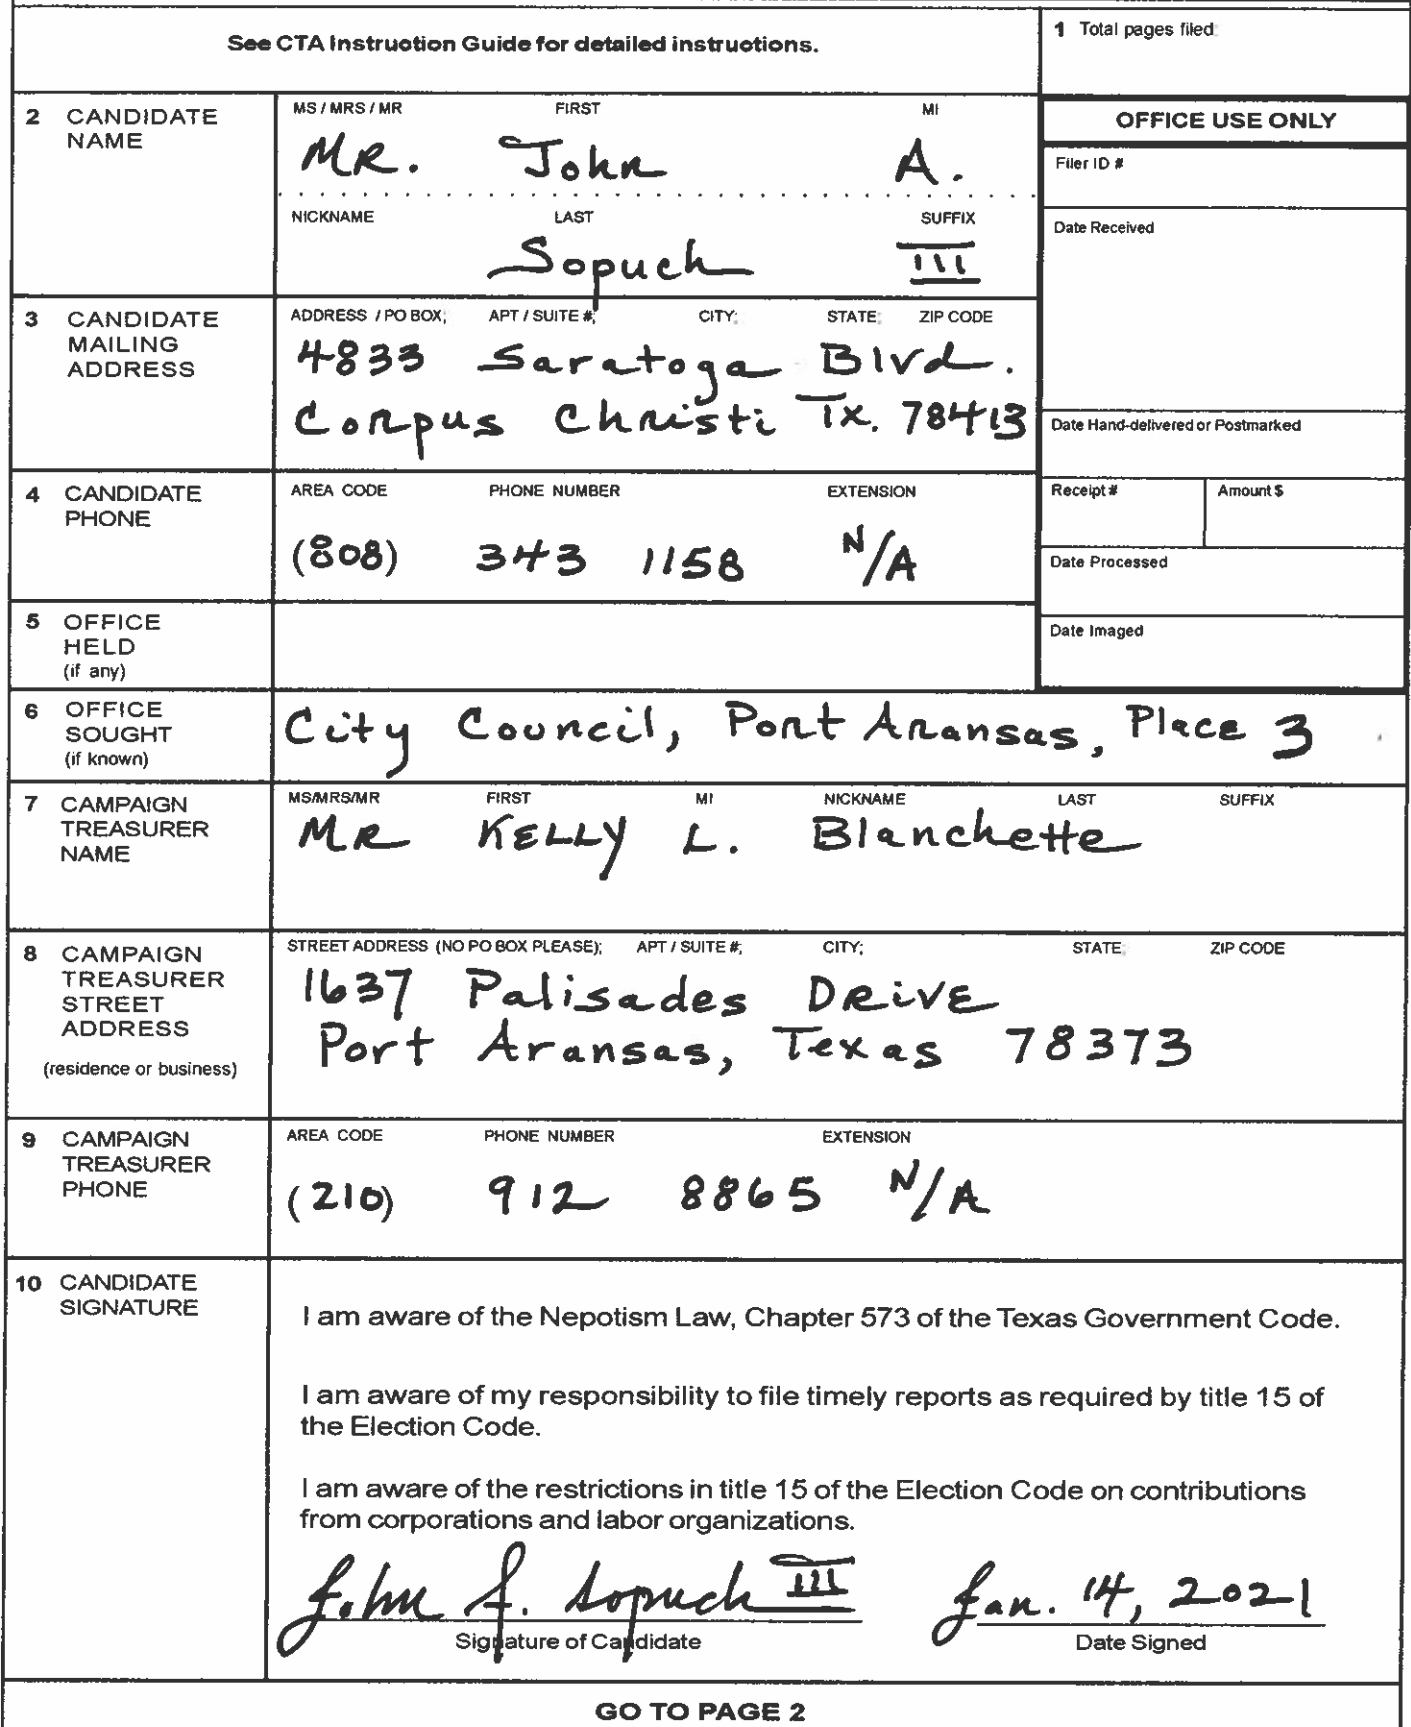 See CTA Instruction Guide for detailed instructions.
1 Total pages filed:
2 CANDIDATE NAME
MS / MRS / MR FIRST MI
Mr. John A.
NICKNAME LAST SUFFIX
Sopuch III
OFFICE USE ONLY
Filer ID #
Date Received
Date Hand-delivered or Postmarked
Receipt # Amount $
Date Processed
Date Imaged
3 CANDIDATE MAILING ADDRESS
ADDRESS / PO BOX; APT / SUITE #; CITY; STATE; ZIP CODE
4833 Saratoga Blvd.
Corpus Christi Tx. 78413
4 CANDIDATE PHONE
AREA CODE PHONE NUMBER EXTENSION
(808) 343 1158 N/A
5 OFFICE HELD (if any)
6 OFFICE SOUGHT (if known)
City Council, Port Aransas, Place 3
7 CAMPAIGN TREASURER NAME
MS/MRS/MR FIRST MI NICKNAME LAST SUFFIX
MR KELLY L. Blanchette
8 CAMPAIGN TREASURER STREET ADDRESS (residence or business)
STREET ADDRESS (NO PO BOX PLEASE); APT / SUITE #; CITY; STATE; ZIP CODE
1637 Palisades Drive
Port Aransas, Texas 78373
9 CAMPAIGN TREASURER PHONE
AREA CODE PHONE NUMBER EXTENSION
(210) 912 8865 N/A
10 CANDIDATE SIGNATURE
I am aware of the Nepotism Law, Chapter 573 of the Texas Government Code.
I am aware of my responsibility to file timely reports as required by title 15 of
the Election Code.
I am aware of the restrictions in title 15 of the Election Code on contributions
from corporations and labor organizations.
John A. Sopuch III Jan. 14, 2021
Signature of Candidate Date Signed
GO TO PAGE 2